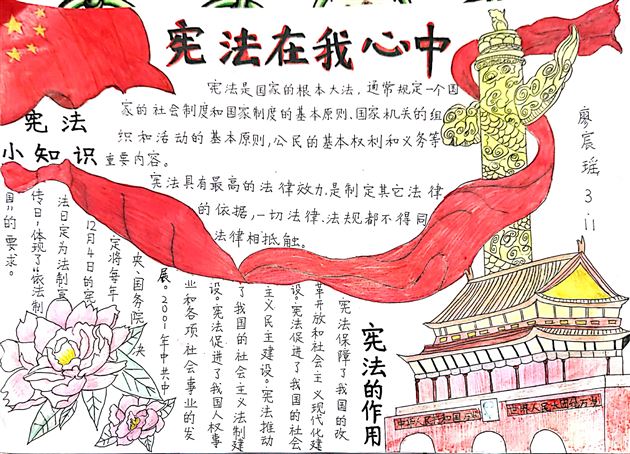 宪法在我心中
宪法
小知识
宪法是国家的根本大法，通常规定一个国
家的社会制度和国家制度的基本原则、国家机关的组
织和活动的基本原则，公民的基本权利和义务等
重要内容。
宪法具有最高的法律效力，是制定其它法律
的依据，一切法律、法规都不得同
法律相抵触。
廖宸瑶 3.11
宪法的作用
宪法保障了我国的改
革开放和社会主义现代化建
设。宪法促进了我国的社会
主义民主建设。宪法推动
了我国的社会主义法制建
设。宪法促进了我国人权事
业和各项社会事业的发
展。2001年中共中
央、国务院决
定将每年
12月4日的宪
法日定为法制宣
传日，体现了“依法制
国”的要求。
中华人民共和国万岁
世界人民大团结万岁